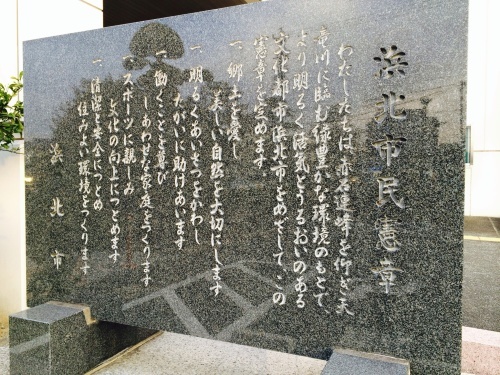 浜北市民憲章
わたしたちは、赤石連峰を仰ぎ天
竜川に臨む緑豊かな環境のもとで、
より明るく活気とうるおいのある
文化都市浜北市をめざして、この
憲章を定めます。
一、郷土を愛し
美しい自然を大切にします
一、明るくあいさつをかわし
たがいに助けあいます
一、働くことを喜び
しあわせな家庭をつくります
一、スポーツに親しみ
文化の向上につとめます
一、清潔と安全につとめ
住みよい環境をつくります
浜北市